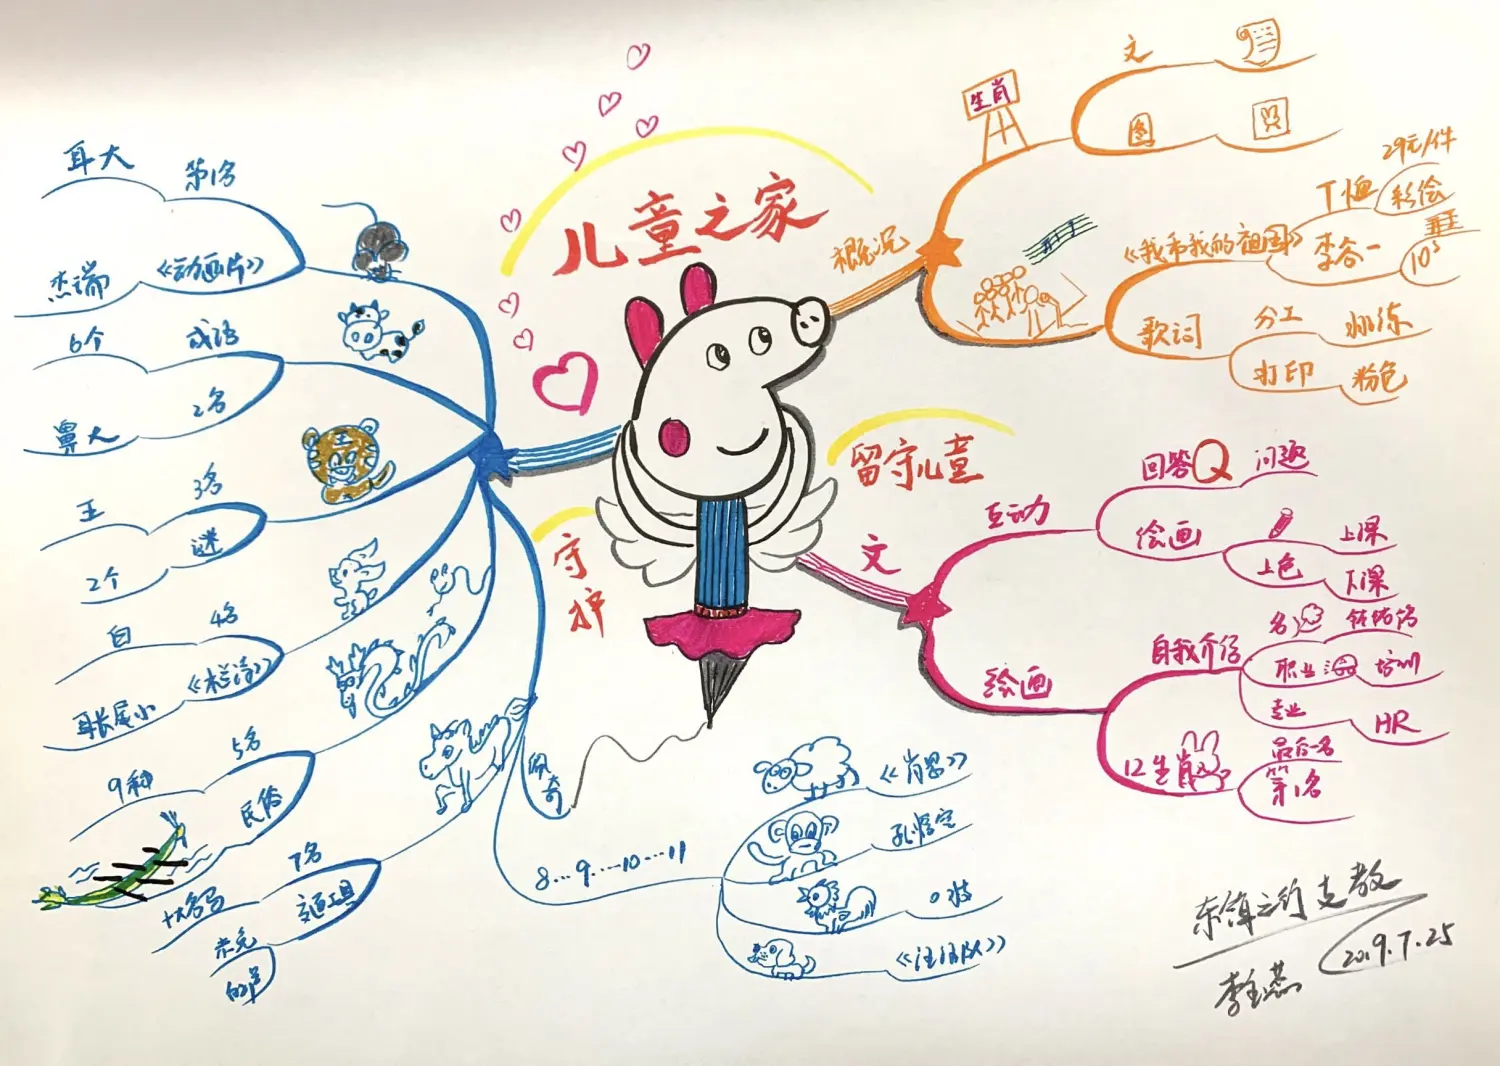 儿童之家
概况
生肖
文
图
《我和我的祖国》
T恤
彩绘
29元/件
李谷一
10's
歌词
分工
训练
打印
粉色
留守儿童
文
互动
回答Q
问题
绘画
上课
上色
下课
绘画
自我介绍
名
职业
培训
专业
HR
12生肖
最后一名
第1名
守护
耳大
第1名
杰瑞
《动画片》
6个
成语
鼻大
2名
王
3名
2个
谜
白
4名
耳长尾小
9种
5名
民俗
7名
十大名马
交通工具
赤兔
的卢
佩奇
8...9...10...11
《肖恩》
孙悟空
《汪汪队》
东镇之约支教
2019.7.25